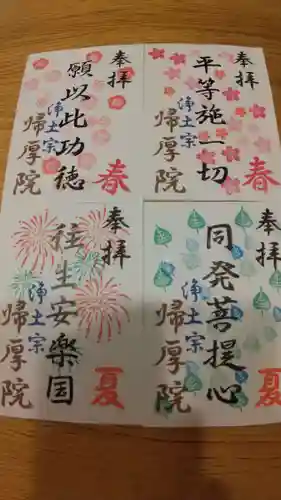 奉拝
願以此功徳
春
浄土宗
帰厚院
奉拝
平等施一切
春
浄土宗
帰厚院
奉拝
同発菩提心
夏
浄土宗
帰厚院
奉拝
往生安楽国
夏
浄土宗
帰厚院